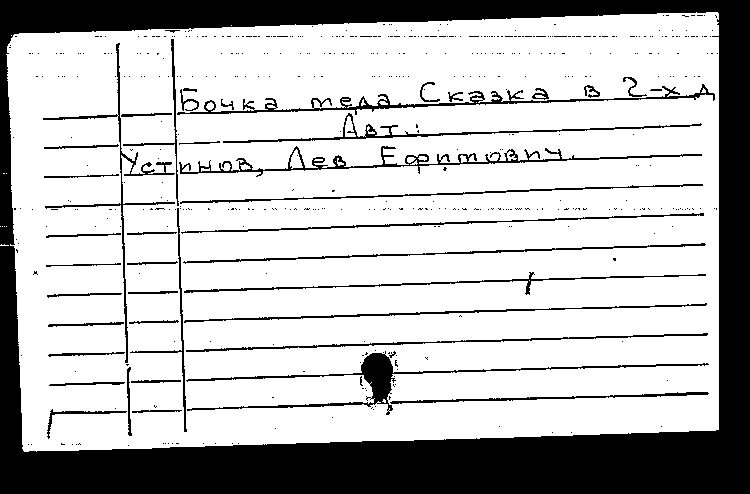 Бочка меда. Сказка в 2-х д
Авт.:
Устинов, Лев Ефимович.